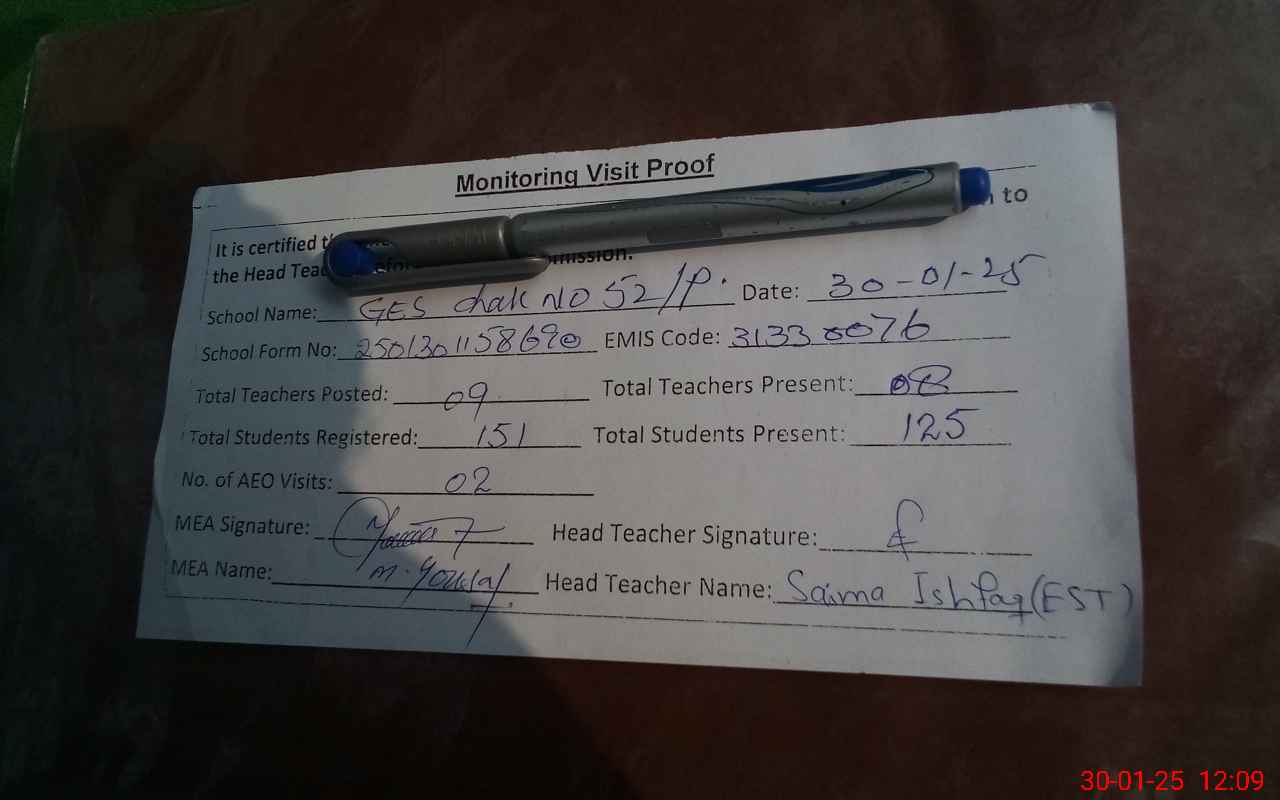 Monitoring Visit Proof
It is certified to
the Head
School Name: GES chak NO 52/P. Date: 30-01-25
School Form No: 2501301158690 EMIS Code: 31330076
Total Teachers Posted: 09 Total Teachers Present: 08
Total Students Registered: 151 Total Students Present: 125
No. of AEO Visits: 02
MEA Signature: Head Teacher Signature:
MEA Name: M. Yousaf Head Teacher Name: Saima Ishfaq (EST)
30-01-25 12:09